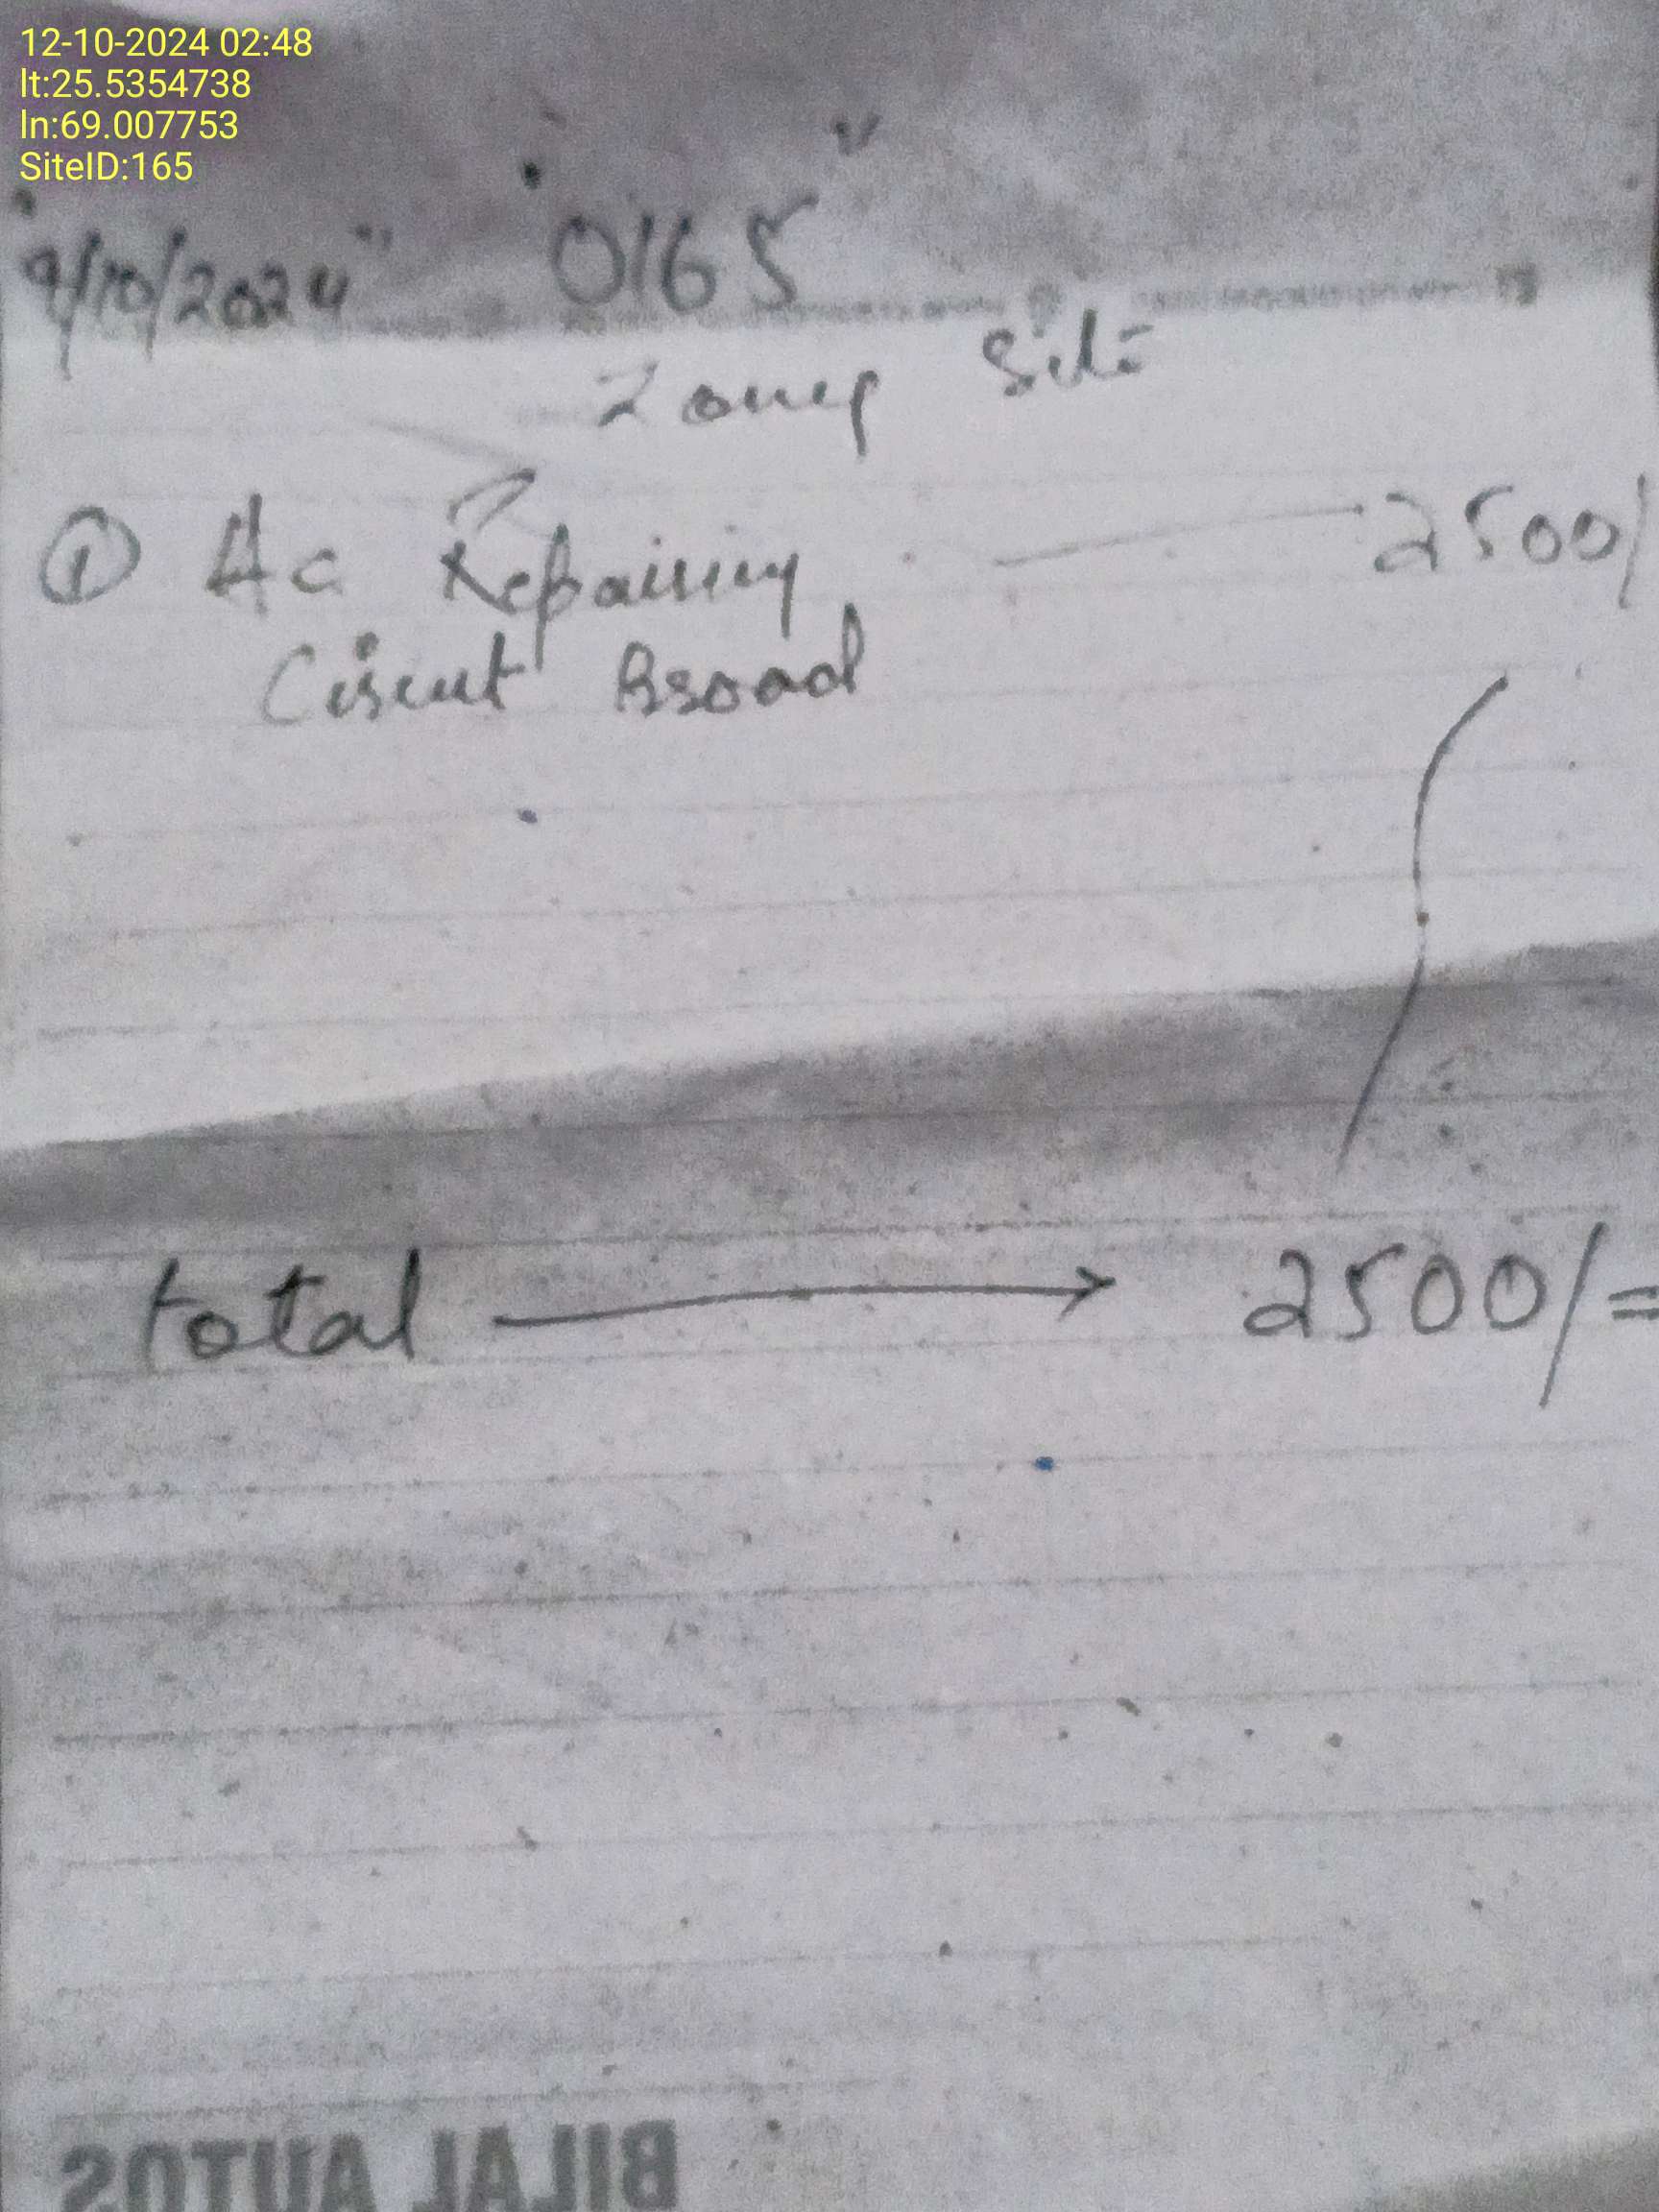 12-10-2024 02:48
lt:25.5354738
ln:69.007753
SiteID:165
"9/10/2024" "0165"
Zong Site
① Ac Repairing 2500/
Circut Broad
total → 2500/=
BILAL AUTOS